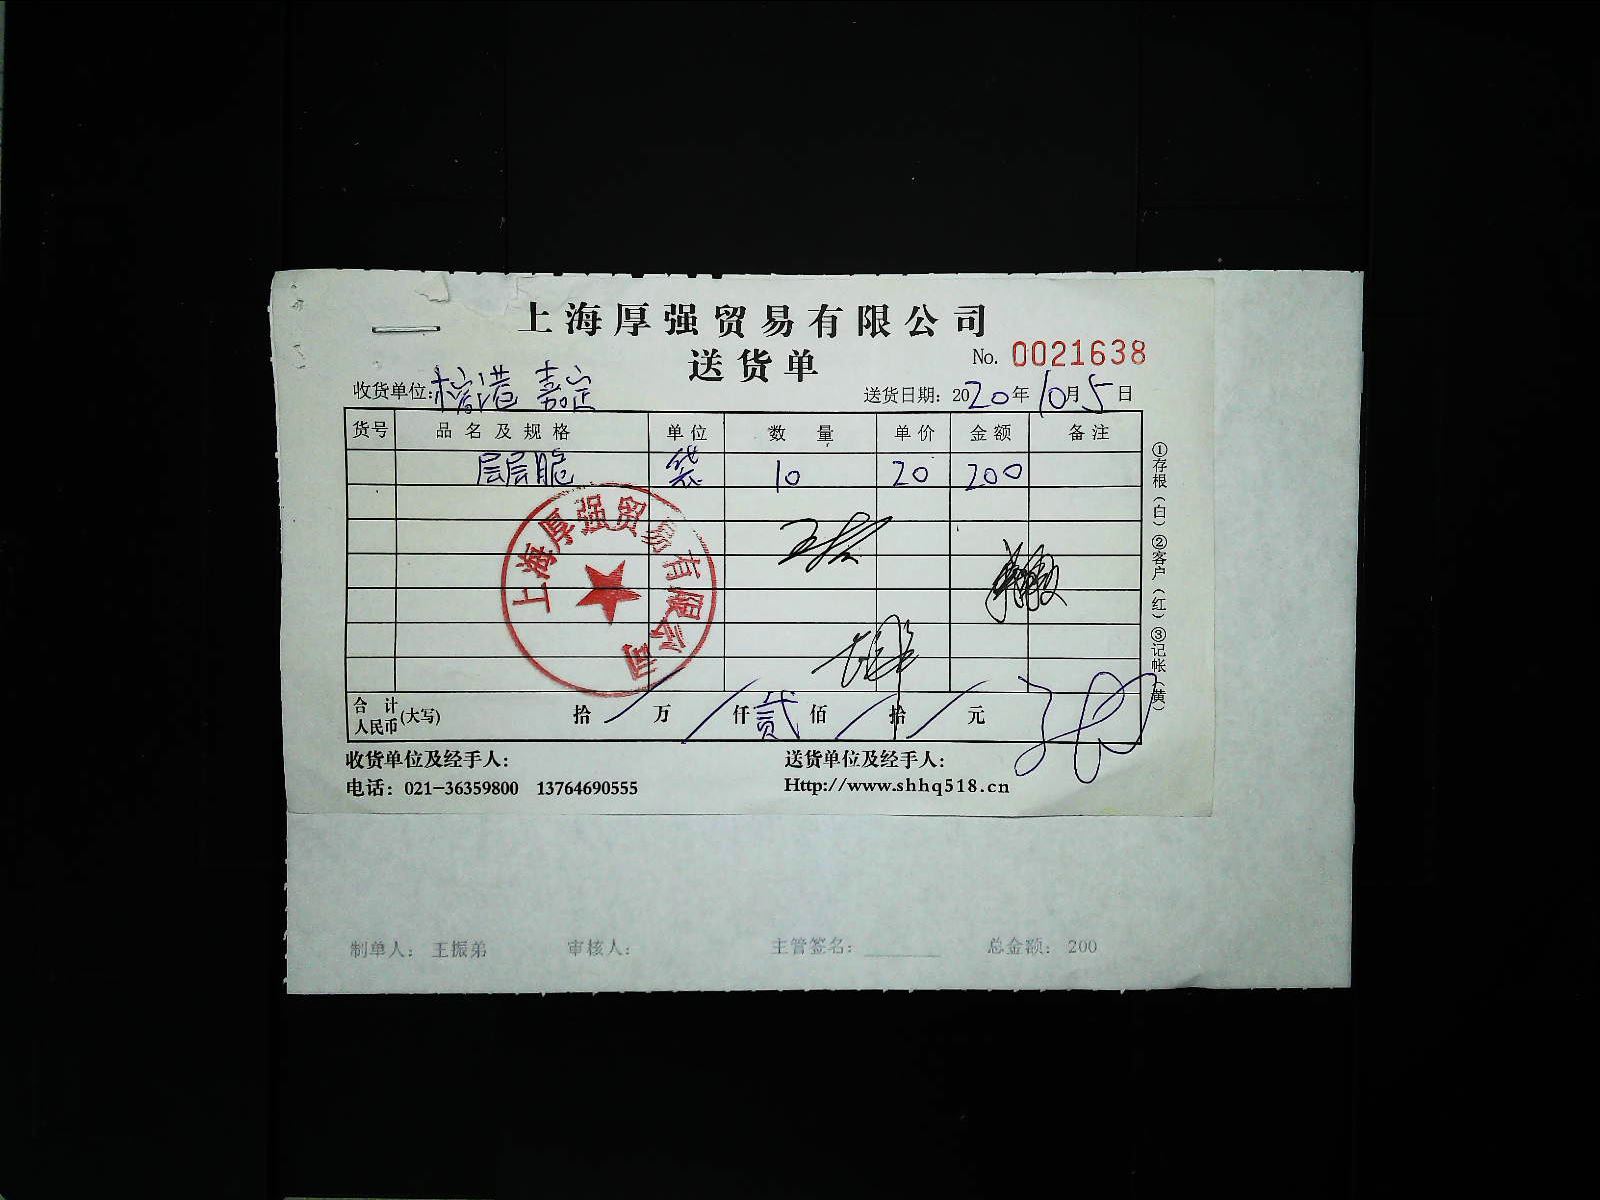 上海厚强贸易有限公司
送货单
No. 0021638
收货单位:榕港 嘉定
送货日期: 2020年10月5日
货号 品名及规格 单位 数量 单价 金额 备注
层层脆 袋 10 20 200
上海厚强贸易有限公司
①存根(白)②客户(红)③记帐(黄)
合计人民币(大写) 拾 万 仟 贰 佰 拾 元
收货单位及经手人: 送货单位及经手人:
电话: 021-36359800 13764690555 Http://www.shhq518.cn
制单人: 王振弟 审核人: 主管签名: 总金额: 200